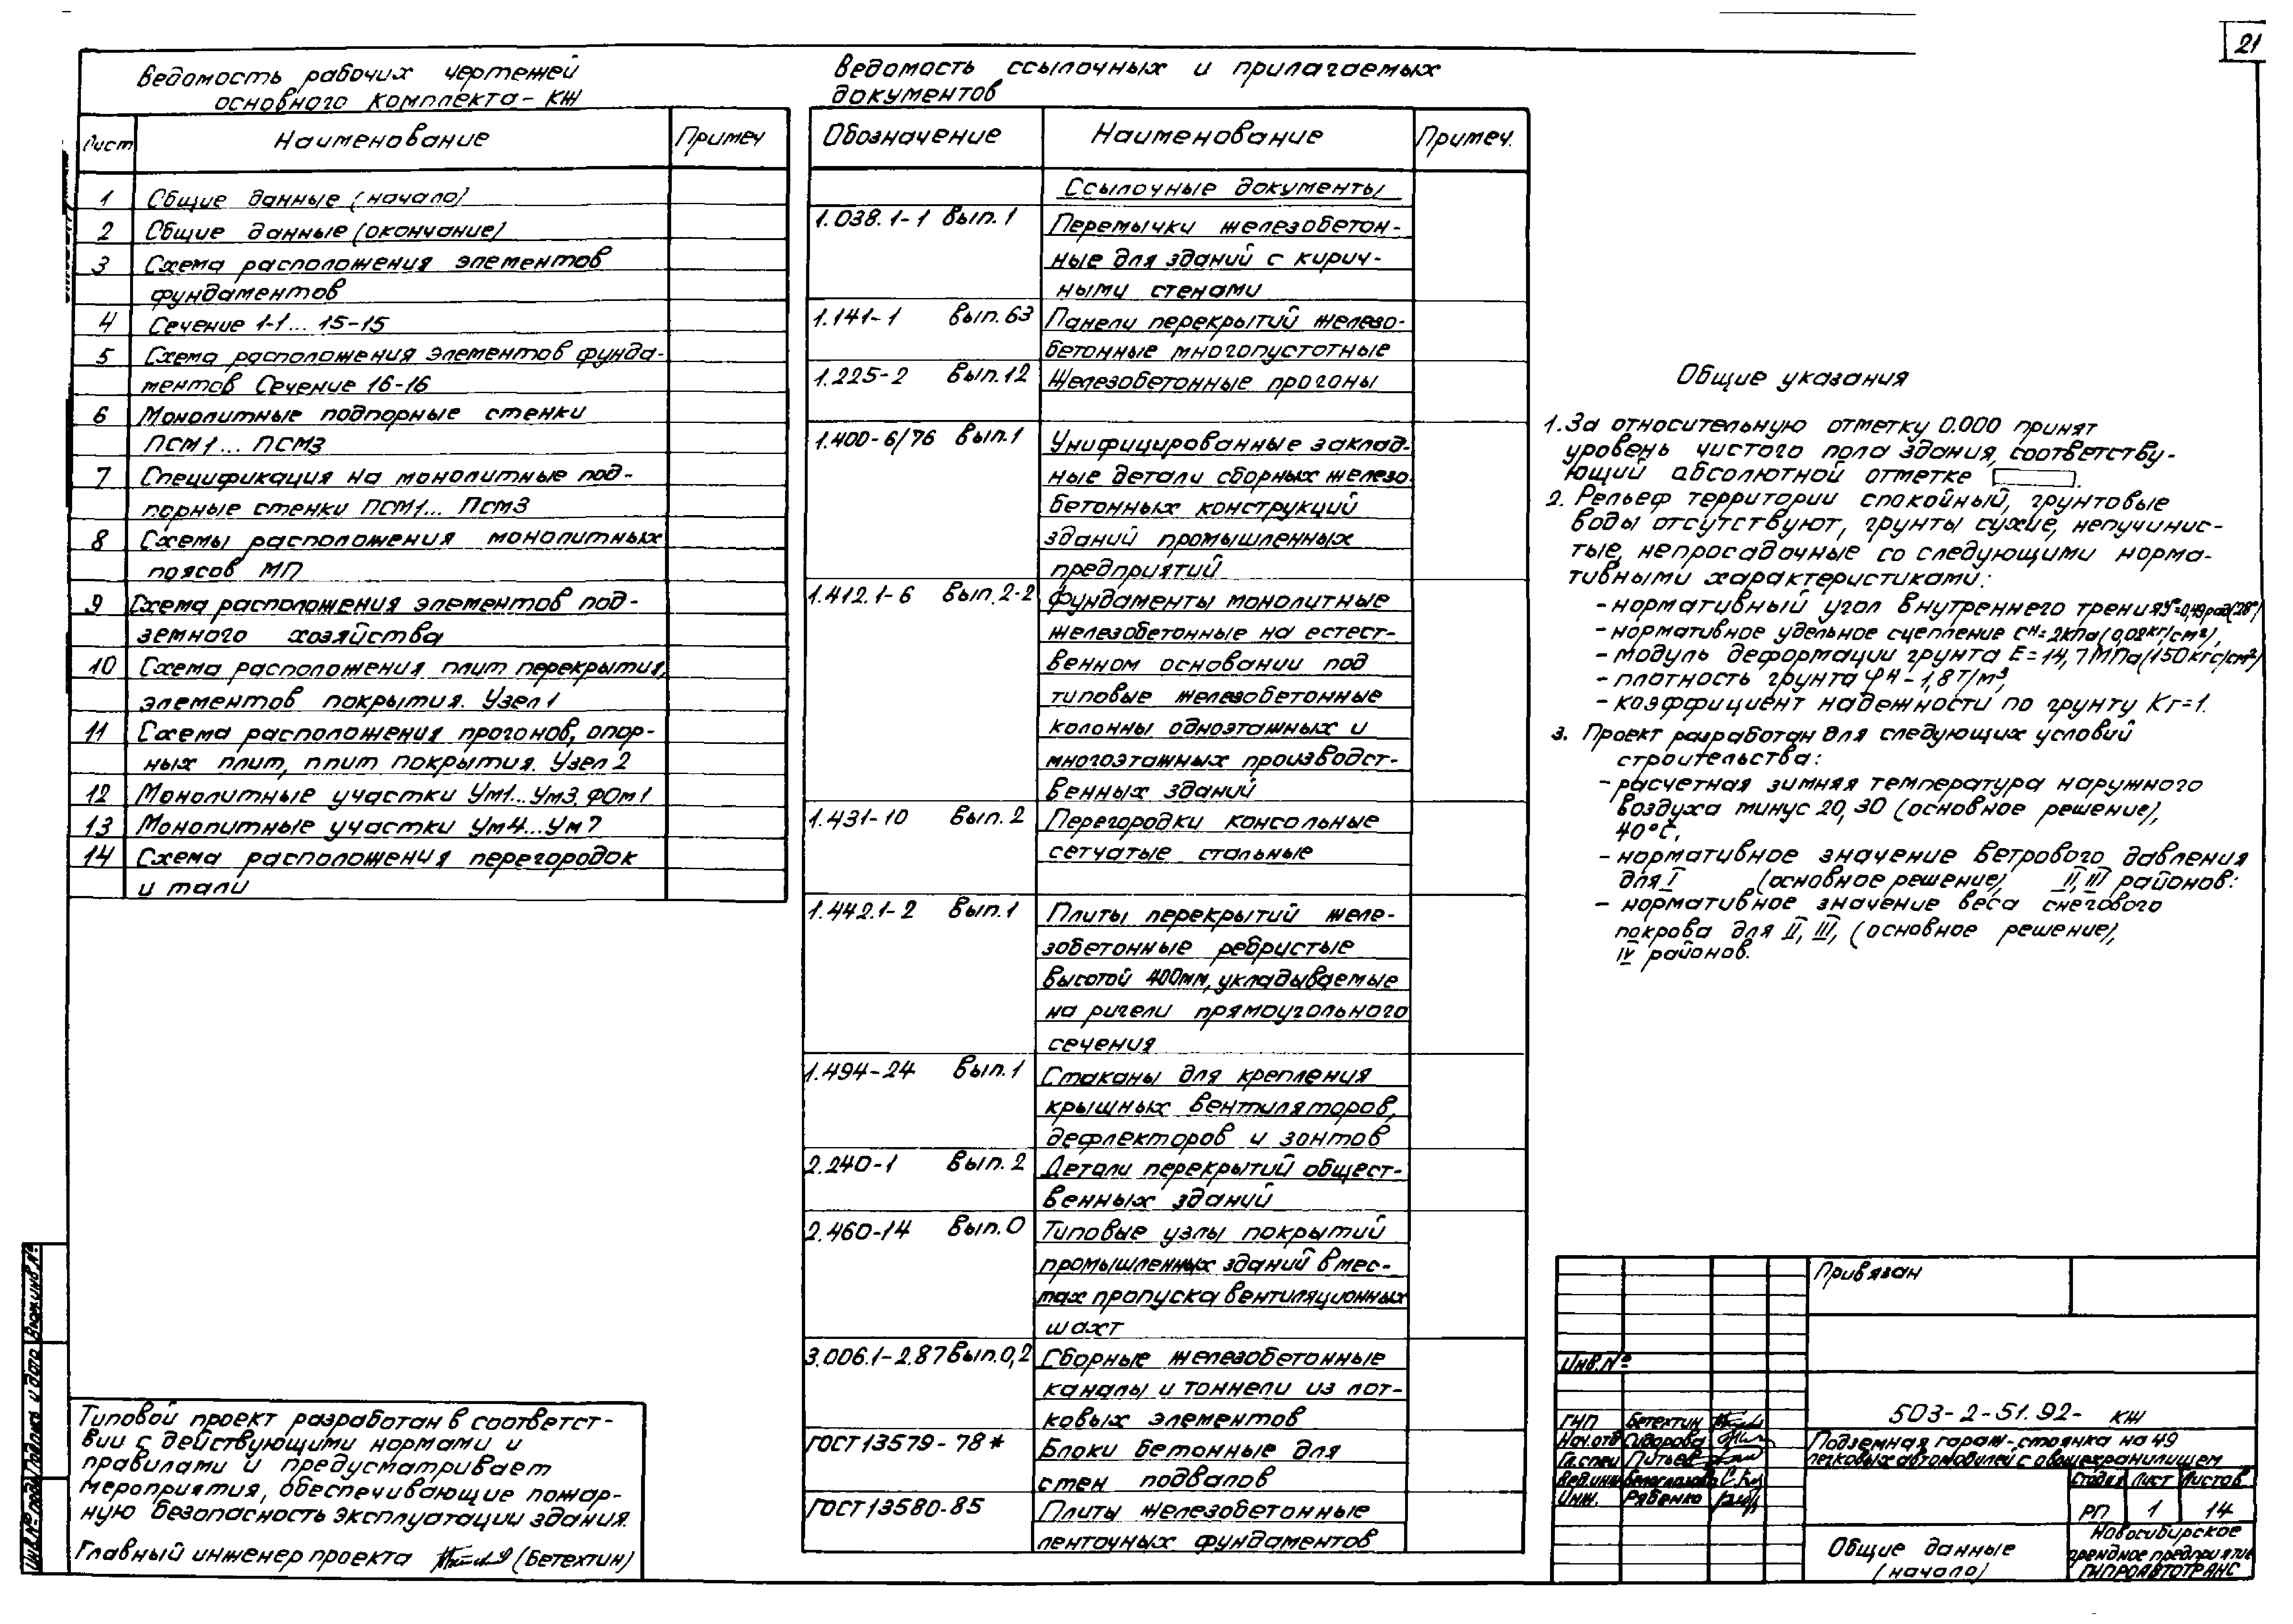 21
Ведомость рабочих чертежей
основного комплекта - КЖ
Лист Наименование Примеч
1 Общие данные (начало)
2 Общие данные (окончание)
3 Схема расположения элементов
фундаментов
4 Сечение 1-1... 15-15
5 Схема расположения элементов фунда-
ментов Сечение 16-16
6 Монолитные подпорные стенки
ПСМ1... ПСМ3
7 Спецификация на монолитные под-
порные стенки ПСМ1... ПСМ3
8 Схемы расположения монолитных
поясов МП
9 Схема расположения элементов под-
земного хозяйства
10 Схема расположения плит перекрытия,
элементов покрытия. Узел 1
11 Схема расположения прогонов, опор-
ных плит, плит покрытия. Узел 2
12 Монолитные участки Ум1... Ум3, ФОм1
13 Монолитные участки Ум4... Ум7
14 Схема расположения перегородок
и тали
Типовой проект разработан в соответст-
вии с действующими нормами и
правилами и предусматривает
мероприятия, обеспечивающие пожар-
ную безопасность эксплуатации здания.
Главный инженер проекта (Бетехтин)
Ведомость ссылочных и прилагаемых
документов
Обозначение Наименование Примеч.
Ссылочные документы
1.038.1-1 Вып.1 Перемычки железобетон-
ные для зданий с кирпич-
ными стенами
1.141-1 Вып.63 Панели перекрытий железо-
бетонные многопустотные
1.225-2 Вып.12 Железобетонные прогоны
1.400-6/76 Вып.1 Унифицированные заклад-
ные детали сборных железо-
бетонных конструкций
зданий промышленных
предприятий
1.412.1-6 Вып.2-2 Фундаменты монолитные
железобетонные на естест-
венном основании под
типовые железобетонные
колонны одноэтажных и
многоэтажных производст-
венных зданий
1.431-10 Вып.2 Перегородки консольные
сетчатые стальные
1.442.1-2 Вып.1 Плиты перекрытий желе-
зобетонные ребристые
высотой 400мм, укладываемые
на ригели прямоугольного
сечения
1.494-24 Вып.1 Стаканы для крепления
крышных вентиляторов,
дефлекторов и зонтов
2.240-1 Вып.2 Детали перекрытий общест-
венных зданий
2.460-14 Вып.0 Типовые узлы покрытий
промышленных зданий в мес-
тах пропуска вентиляционных
шахт
3.006.1-2.87 Вып.0,2 Сборные железобетонные
каналы и тоннели из лот-
ковых элементов
ГОСТ 13579-78* Блоки бетонные для
стен подвалов
ГОСТ 13580-85 Плиты железобетонные
ленточных фундаментов
Общие указания
1. За относительную отметку 0.000 принят
уровень чистого пола здания, соответству-
ющий абсолютной отметке
2. Рельеф территории спокойный, грунтовые
воды отсутствуют, грунты сухие, непучинис-
тые, непросадочные со следующими норма-
тивными характеристиками:
- нормативный угол внутреннего трения φн=0,49рад(28°)
- нормативное удельное сцепление Cн=2кПа(0,02кг/см²),
- модуль деформации грунта E=14,7МПа(150кгс/см²)
- плотность грунта φн-1,8т/м³,
- коэффициент надежности по грунту Кг=1.
3. Проект разработан для следующих условий
строительства:
- расчетная зимняя температура наружного
воздуха минус 20, 30 (основное решение),
40°С,
- нормативное значение ветрового давления
для I (основное решение), II, III районов:
- нормативное значение веса снегового
покрова для II, III, (основное решение),
IV районов.
Привязан
Инв.№
503-2-51.92- КЖ
ГИП Бетехтин
Нач.отд Сидорова
Гл.спец Питьев
Вед.инж
Инж. Рябенко
Подземная гараж-стоянка на 49
легковых автомобилей с овощехранилищем
Стадия Лист Листов
РП 1 14
Общие данные
(начало)
Новосибирское
арендное предприятие
ГИПРОАВТОТРАНС
Инв.№ подл. Подпись и дата Взам.инв.№